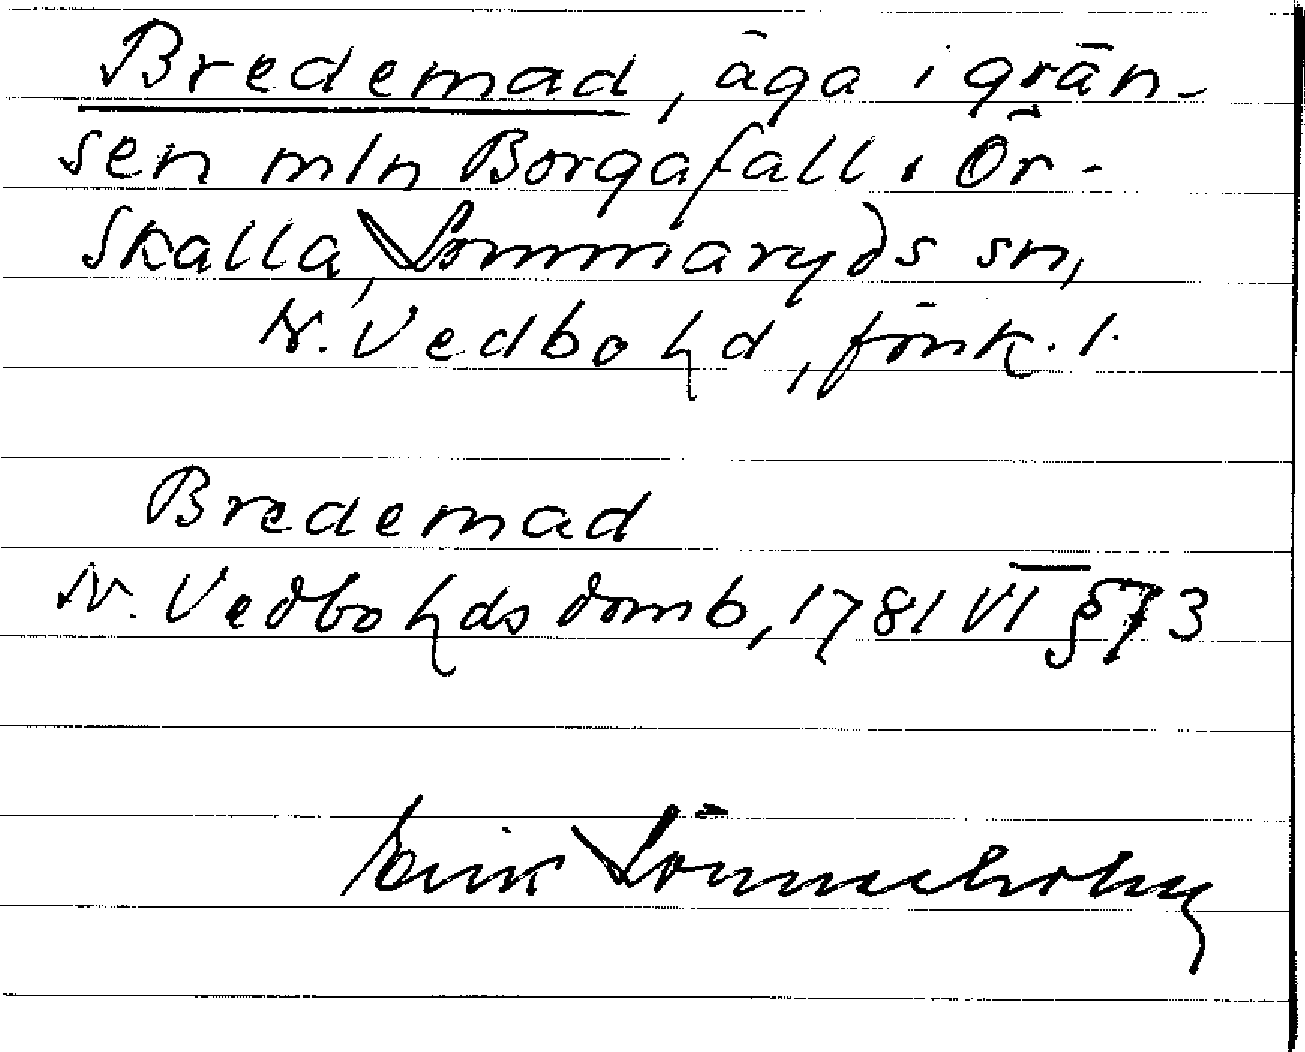 Bredemad, äga i grän-
sen mln Borgafall i Ör-
skalla, Sommaryds sn,
N. Vedbo hd, Jönk. l.
Bredemad
N. Vedbo hds domb, 1781 VI § 73